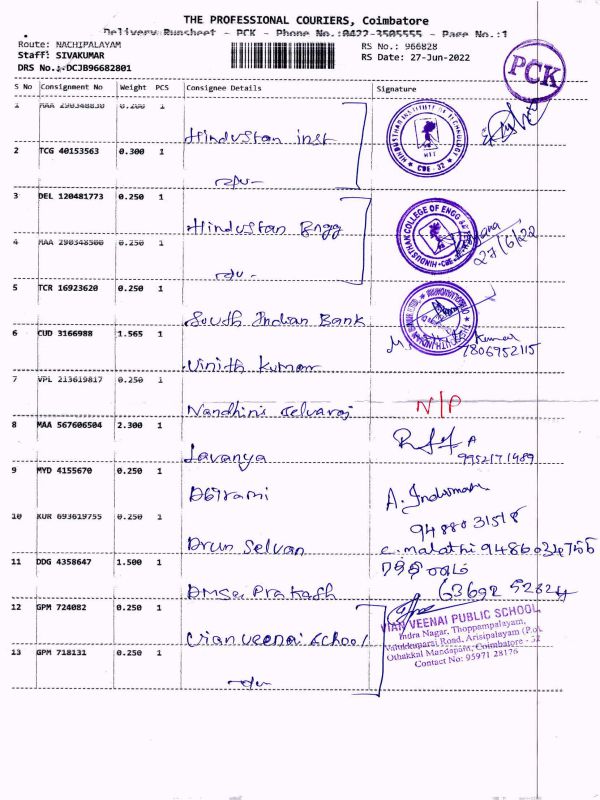 THE PROFESSIONAL COURIERS, Coimbatore
Delivery Runsheet - PCK - Phone No.:0422-3505555 - Page No.:1
Route: NACHIPALAYAM
Staff: SIVAKUMAR
DRS No.:-DCJB96682801
RS No.: 966828
RS Date: 27-Jun-2022
PCK
S No Consignment No Weight PCS Consignee Details Signature
1 MAA 290348830 0.200 1
Hindustan inst
HINDUSTHAN INSTITUTE OF TECHNOLOGY
HIT
CBE - 32
2 TCG 40153563 0.300 1
3 DEL 120481773 0.250 1
Hindustan Engg
27/6/22
4 MAA 290348500 0.250 1
5 TCR 16923620 0.250 1
South Indian Bank
6 CUD 3166988 1.565 1
Kumar
7806952115
Vinith Kumar
7 VPL 213619817 0.250 1
Nandhini Selvaraj
N/P
8 MAA 567606504 2.300 1
Lavanya
9952171989
9 MYD 4155670 0.250 1
Abirami
A. Indumani
9488031518
10 KUR 693619755 0.250 1
Arun Selvan
C. malathi 9486034766
11 DDG 4358647 1.500 1
Prakash
63692 52824
12 GPM 724082 0.250 1
Vian veenai School
VIAN VEENAI PUBLIC SCHOOL
Indra Nagar, Thoppampalayam,
Valukkuparai Road, Arisipalayam (P.o),
Othakkal Mandapam, Coimbatore - 32
Contact No: 95971 28176
13 GPM 718131 0.250 1